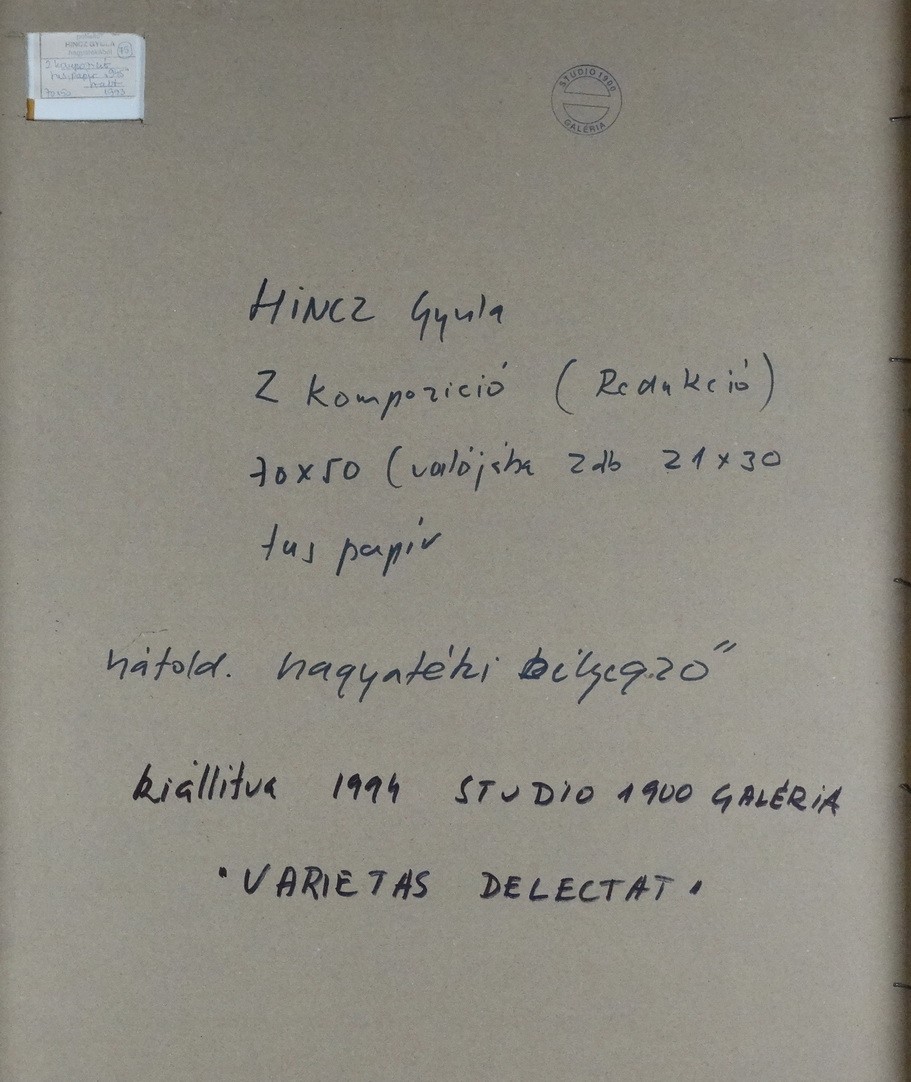 HINCZ GYULA
2 kompozíció
tus, papír
70x50
STUDIO 1900
GALÉRIA
HINCZ Gyula
2 kompozició (Redukció)
70x50 (valójába 2db 21x30
tus papír
hátold. hagyatéki bélyegző"
kiállitva 1994 STUDIO 1900 GALÉRIA
"VARIETAS DELECTAT"